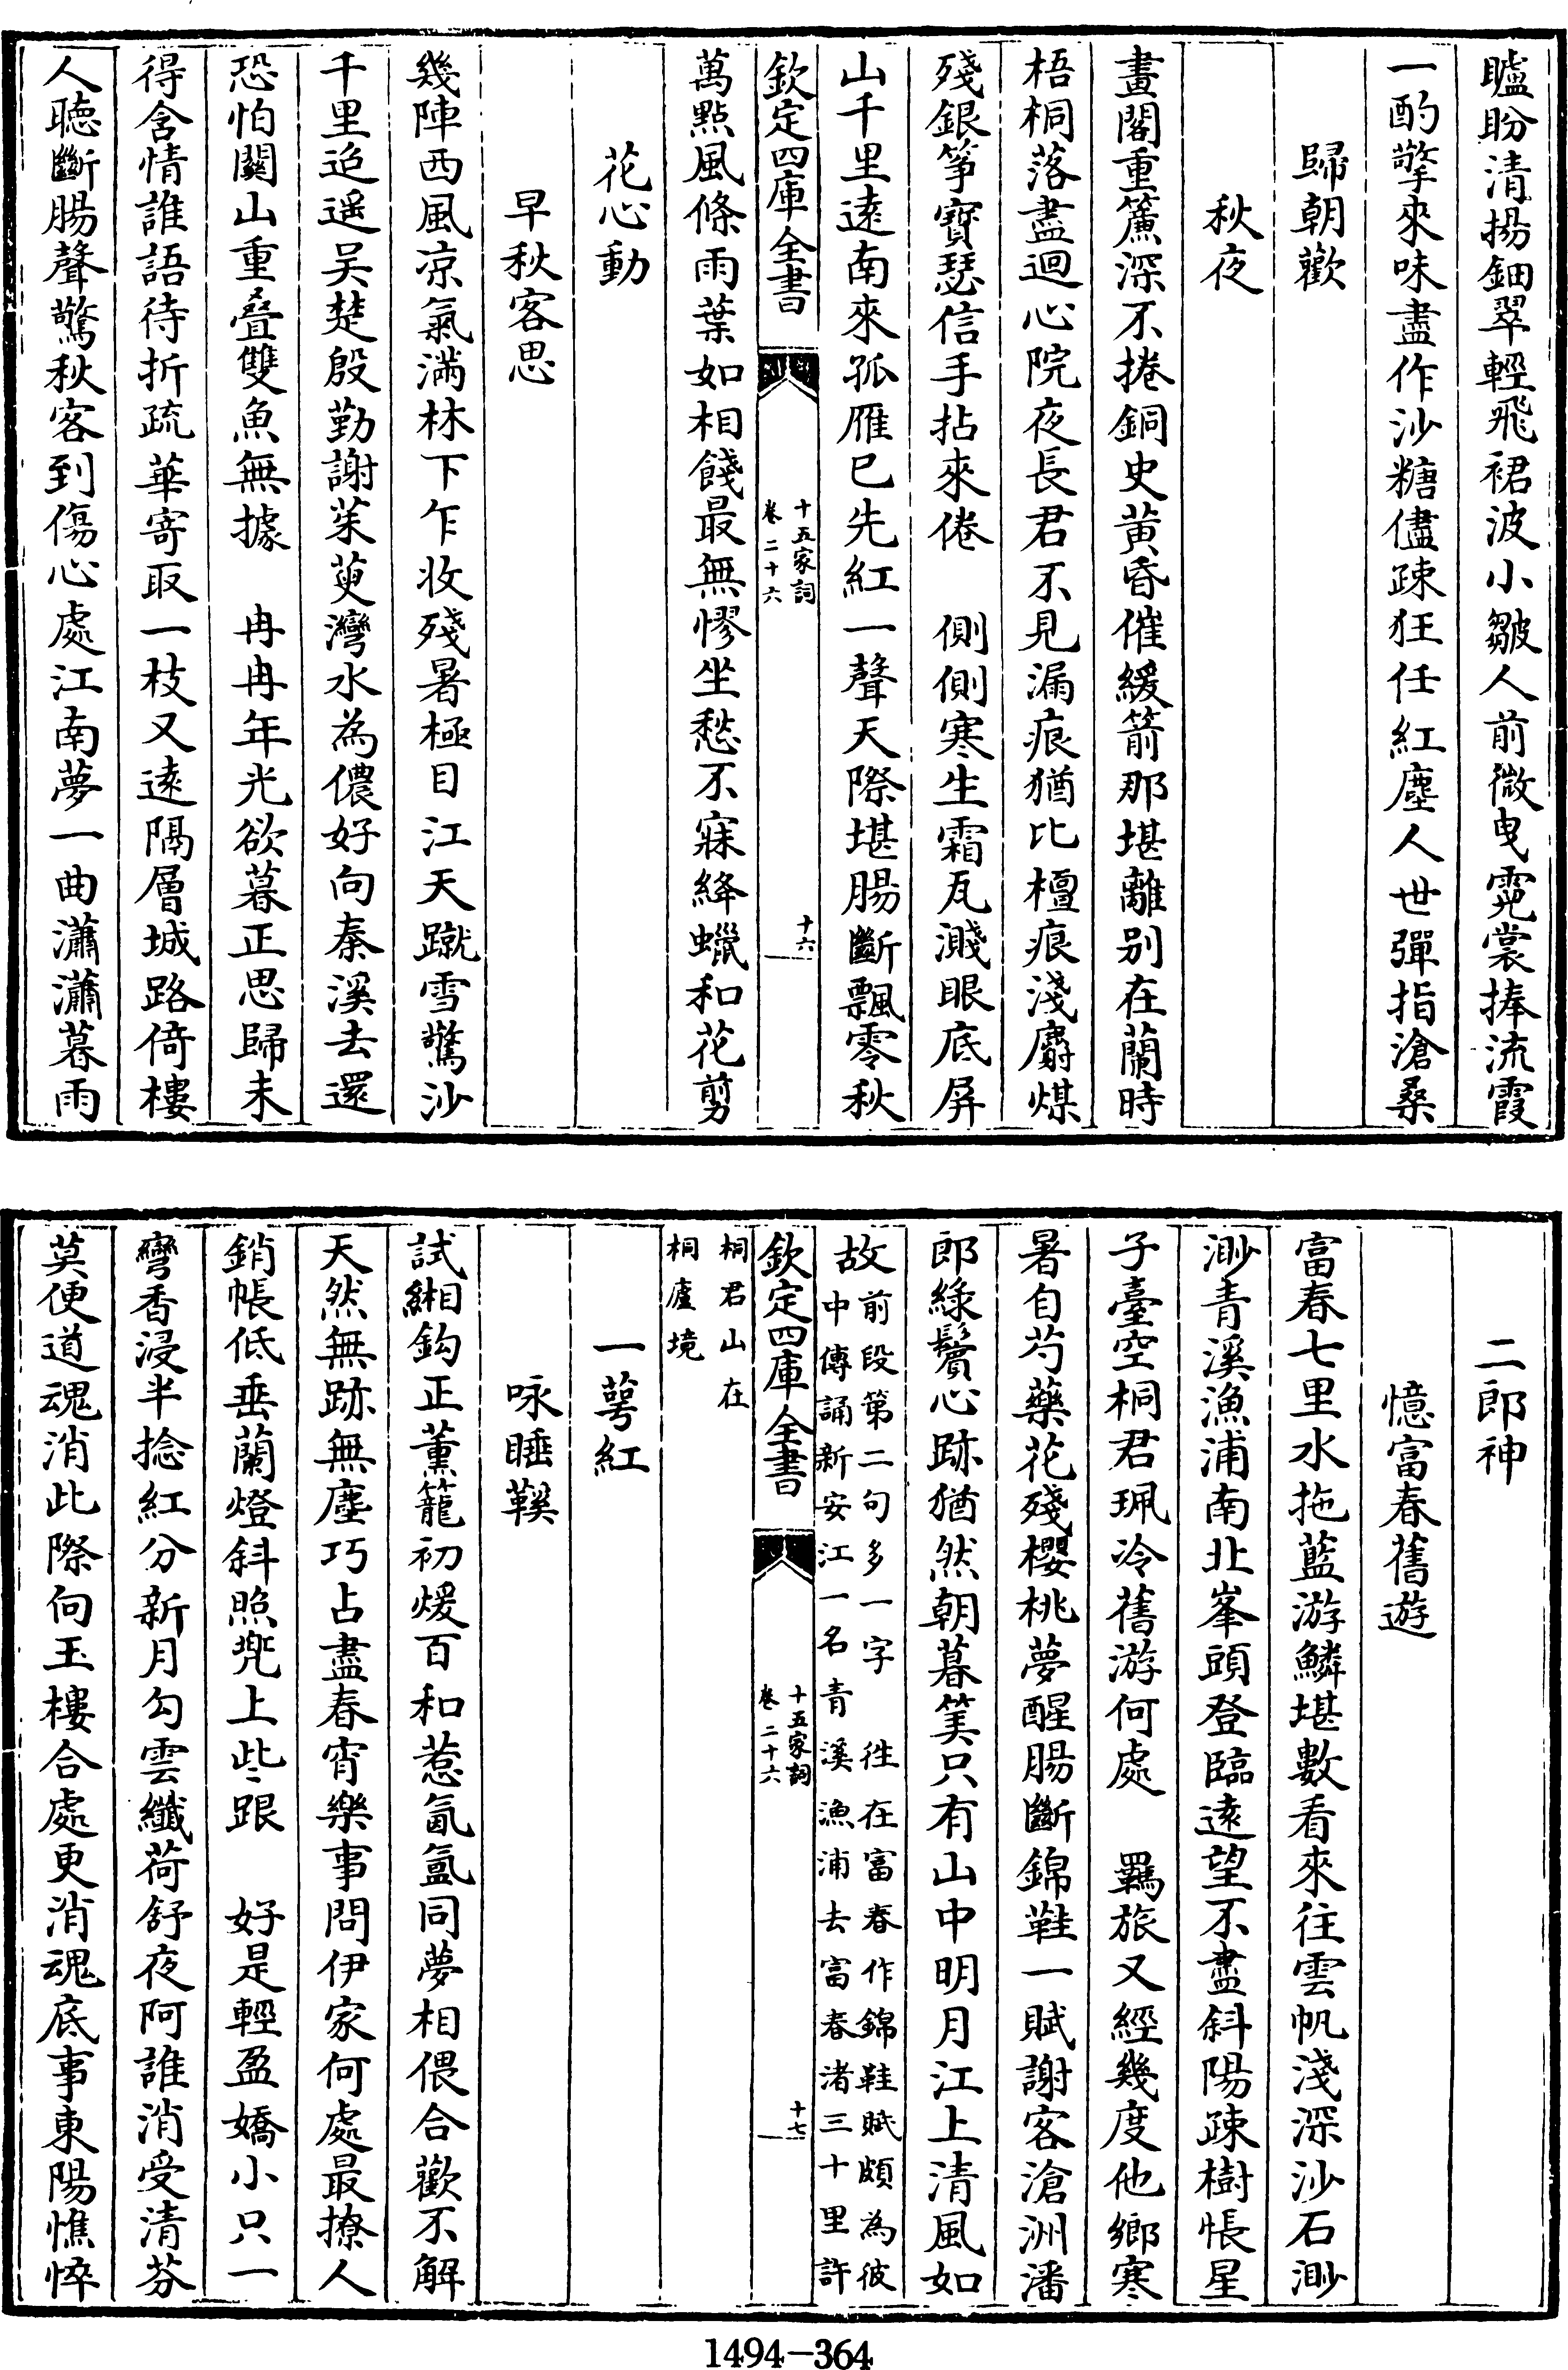 矑盼清揚鈿翠輕飛裙波小皺人前微曳霓裳捧流霞
一酌擎來味盡作沙糖儘疎狂任紅塵人世彈指滄桑
歸朝歡
秋夜
畫閣重簾深不捲銅史黃昏催緩箭那堪離别在蘭時
梧桐落盡迴心院夜長君不見漏痕猶比檀痕淺麝煤
殘銀箏寶瑟信手拈來倦　側側寒生霜瓦濺眼底屏
山千里逺南來孤雁已先紅一聲天際堪腸斷飄零秋
欽定四庫全書
十五家詞
卷二十六
十六
萬點風條雨葉如相餞最無憀坐愁不寐絳蠟和花剪
花心動
早秋客思
幾陣西風凉氣滿林下乍收殘暑極目江天蹴雪驚沙
千里迢遥吴楚殷勤謝茱萸灣水為儂好向秦溪去還
恐怕關山重叠雙魚無據　冉冉年光欲暮正思歸未
得含情誰語待折疏華寄取一枝又逺隔層城路倚樓
人聽斷腸聲驚秋客到傷心處江南夢一曲瀟瀟暮雨
二郎神
憶富春舊遊
富春七里水拖藍游鱗堪數看來往雲帆淺深沙石渺
渺青溪漁浦南北峯頭登臨逺望不盡斜陽疎樹悵星
子臺空桐君珮冷舊游何處　羈旅又經幾度他鄉寒
暑自芍藥花殘櫻桃夢醒腸斷錦鞋一賦謝客滄洲潘
郎緑鬢心跡猶然朝暮筭只有山中明月江上清風如
故前段第二句多一字　徃在富春作錦鞋賦頗為彼
中傳誦新安江一名青溪漁浦去富春渚三十里許
欽定四庫全書
十五家詞
卷二十六
十七
桐君山在
桐廬境
一萼紅
咏睡鞵
試緗鈎正薰籠初煖百和惹氤氳同夢相偎合歡不解
天然無跡無塵巧占盡春宵樂事問伊家何處最撩人
銷帳低垂蘭燈斜照兜上些跟　好是輕盈嬌小只一
彎香浸半捻紅分新月勾雲纖荷舒夜阿誰消受清芬
莫便道魂消此際向玉樓合處更消魂底事東陽憔悴
1494-364